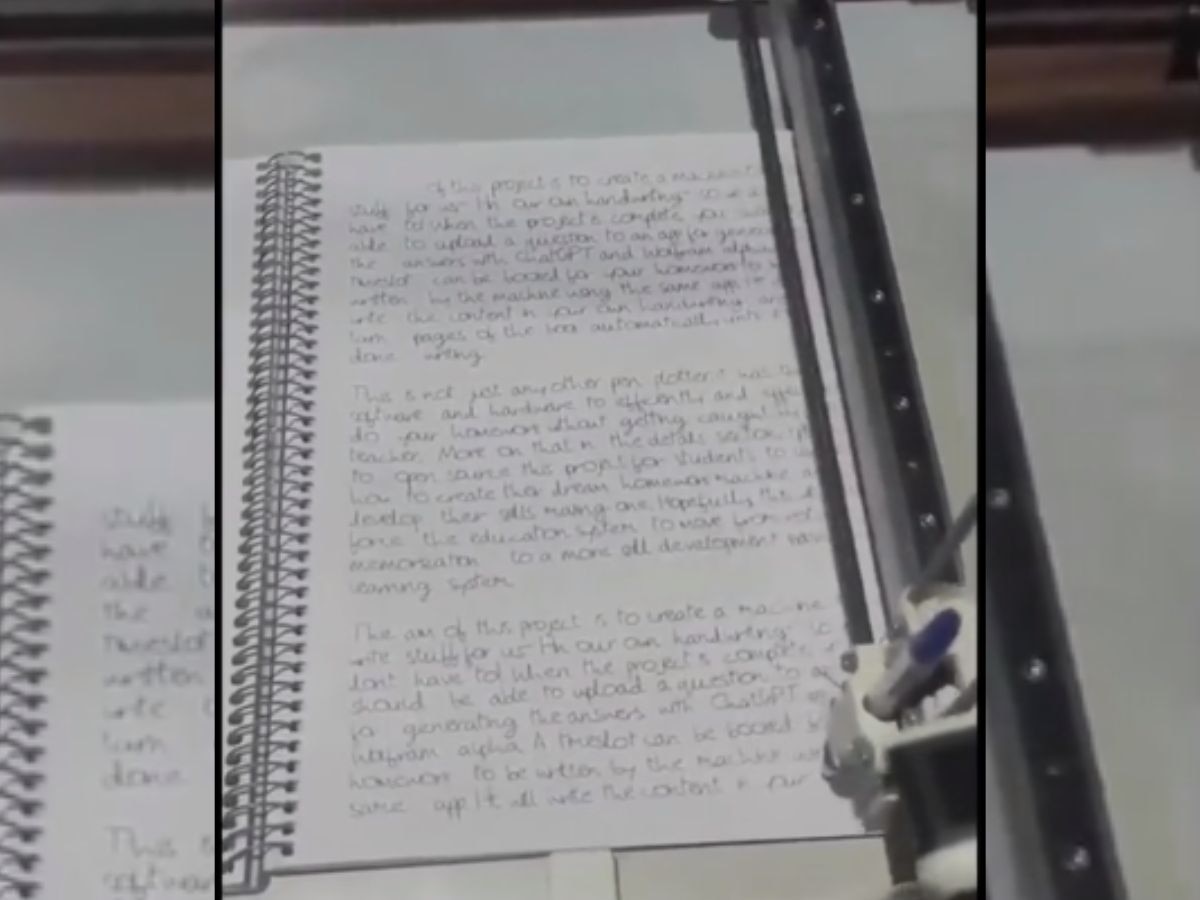 of this project is to create a machine
stuff for us with our own handwriting so
have to when the project is complete you
able to upload a question to an app for
the answers with ChatGPT and Wolfram alpha
timeslot can be booked for your homework to
written by the machine using the same app it
write the content in your own handwriting and
turn pages of the book automatically until
done writing.
This is not just any other pen plotter it was
software and hardware to efficiently and
do your homework without getting caught
teacher. More on that in the details section
to open source this project for students to
how to create their dream homework machine
develop their skills making one. Hopefully this
force the education system to move from
memorization to a more skill development
learning system
The aim of this project is to create a machine
write stuff for us with our own handwriting so
dont have to! when the project is complete
should be able to upload a question to
for generating the answers with ChatGPT
Wolfram alpha A timeslot can be booked
homework to be written by the machine
same app It will write the content in your